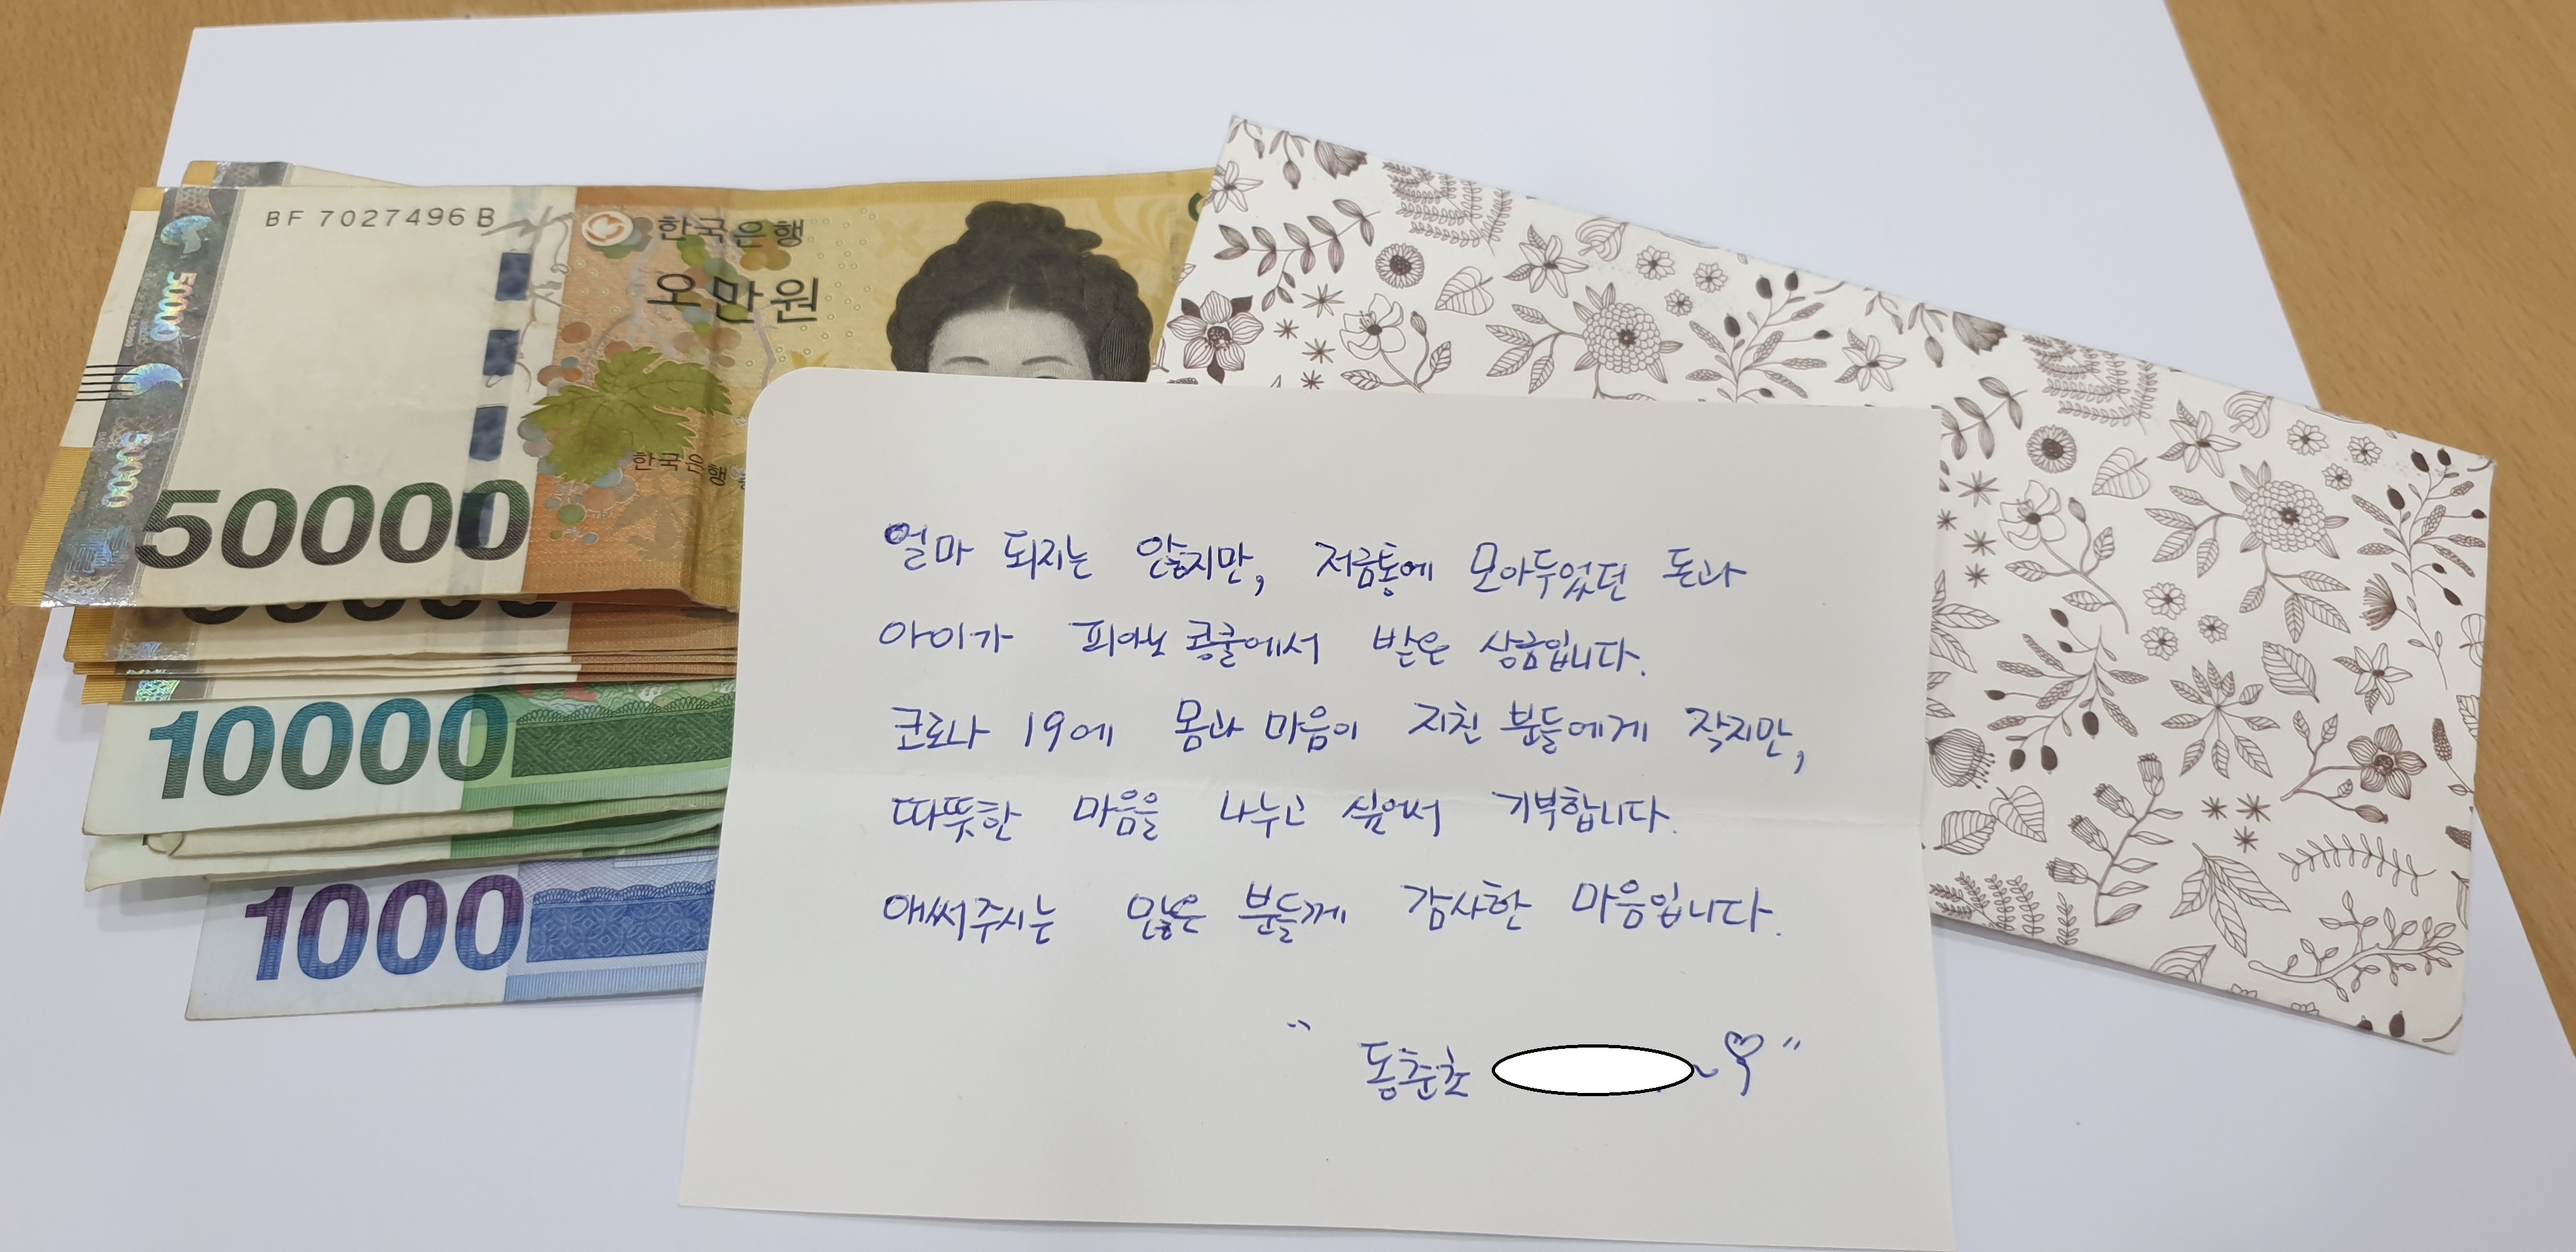 BF 7027496 B
한국은행
오만원
한국은행
50000
50000
50000
10000
1000
얼마 되지는 않지만, 저금통에 모아두었던 돈과
아이가 피아노 콩쿨에서 받은 상금입니다.
코로나 19에 몸과 마음이 지친 분들에게 작지만,
따뜻한 마음을 나누고 싶어서 기부합니다.
애써주시는 많은 분들께 감사한 마음입니다.
" 동춘초 ~♡"